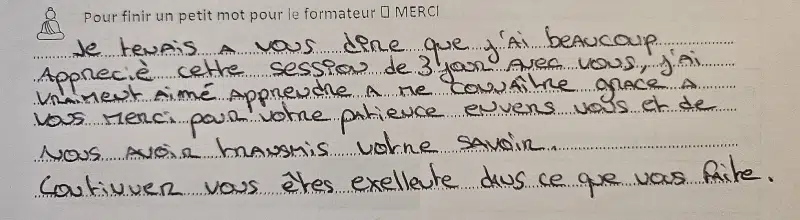 Pour finir un petit mot pour le formateur ▯ MERCI
Je tenais a vous dire que j'ai beaucoup
Apprecié cette session de 3 jour avec vous, j'ai
vraiment aimé apprendre a me connaître grace a
vous merci pour votre patience envers vous et de
nous avoir transmis votre savoir.
Continuer vous êtes exellente dans ce que vous faite.